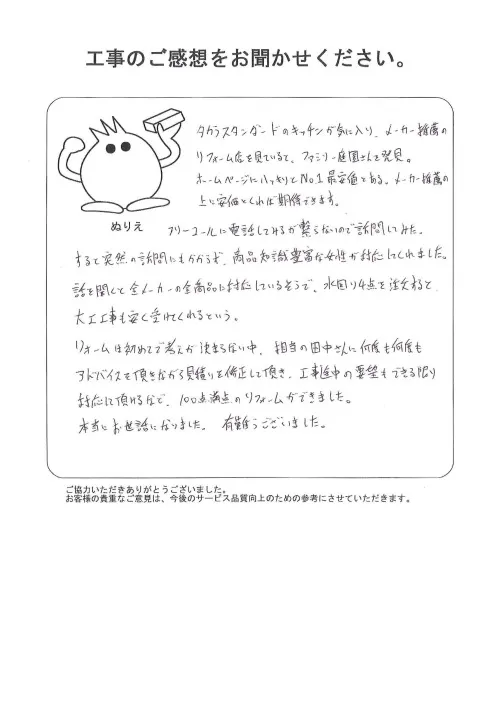 工事のご感想をお聞かせください。
タカラスタンダードのキッチンが気に入り、メーカー推薦の
リフォーム店を見ていると、ファミリー庭園さんを発見。
ホームページにハッキリとNo.1最安値とある。メーカー推薦の
上に安価とくれば期待できます。
ぬりえ
フリーコールに電話してみるが繋らないので訪問してみた。
すると突然の訪問にもかからず、商品知識豊富な女性が対応してくれました。
話を聞くと全メーカーの全商品に対応しているそうで、水回り4点を注文すると
大工工事も安く受けてくれるという。
リフォームは初めてで考えが決まらない中、担当の田中さんに何度も何度も
アドバイスを頂きながら見積りを修正して頂き、工事途中の要望もできる限り
対応して頂けるなど、100点満点のリフォームができました。
本当にお世話になりました。有難うございました。
ご協力いただきありがとうございました。
お客様の貴重なご意見は、今後のサービス品質向上のための参考にさせていただきます。